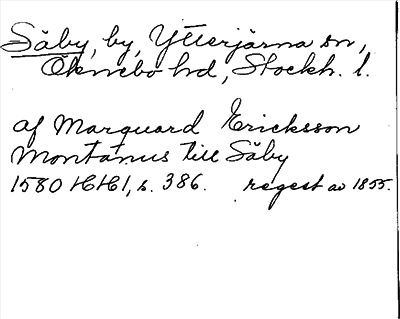 Säby, by, Ytterjärna sn,
Öknebo hd, Stockh. l.
af Marquard Ericksson
Montanus till Säby
1580 HH1, s. 386. regest av 1855.